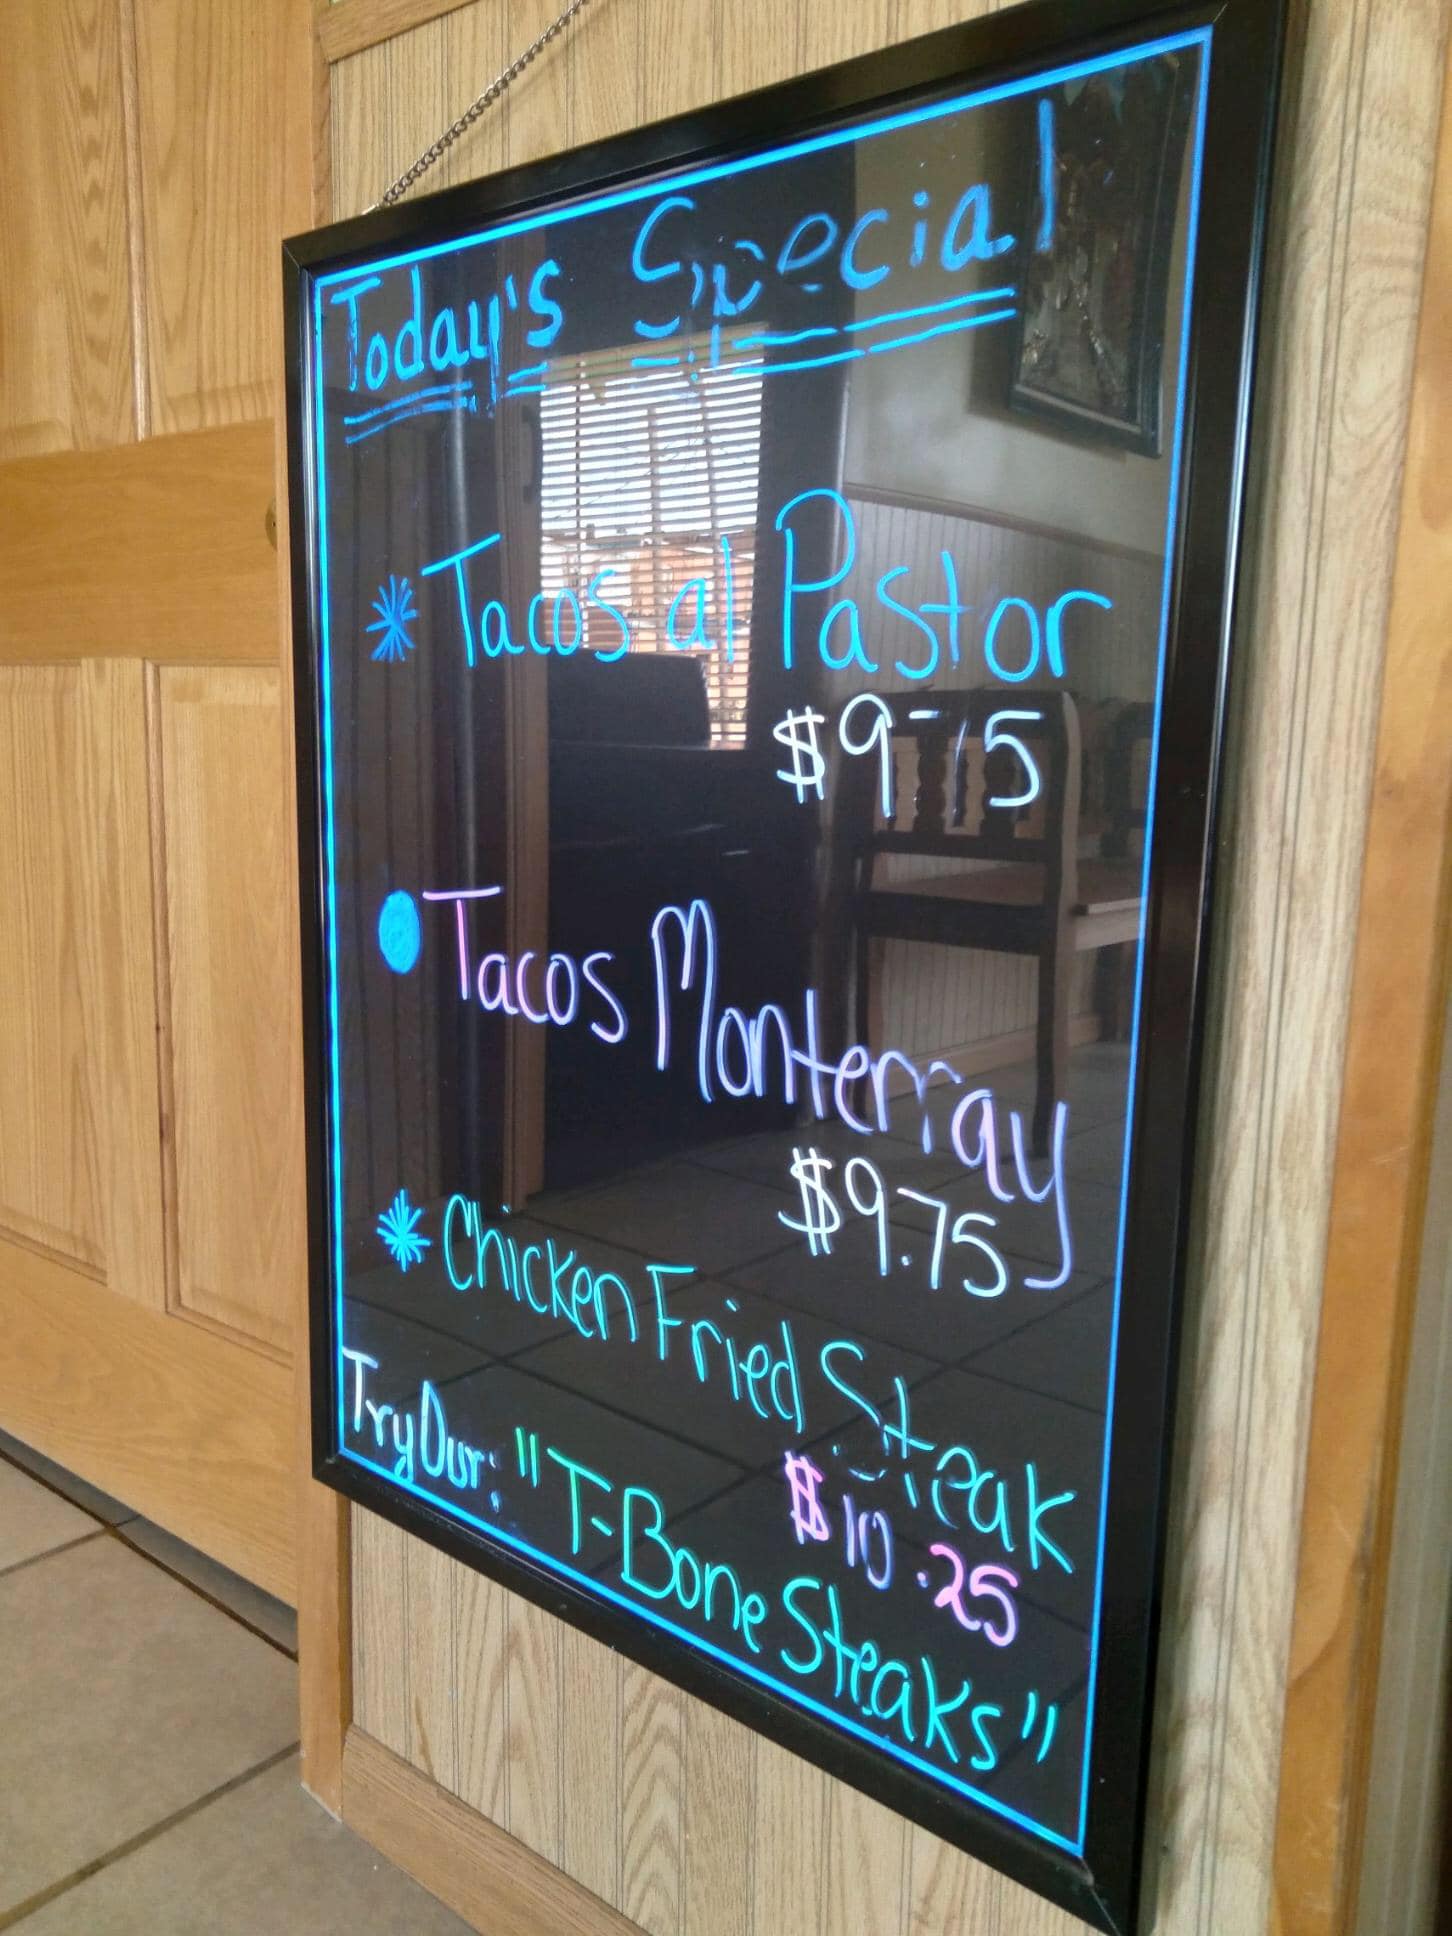 Today's Special
Tacos al Pastor
$9.75
Tacos Monterray
$9.75
Chicken Fried Steak
$10.25
Try Our: "T-Bone Steaks"